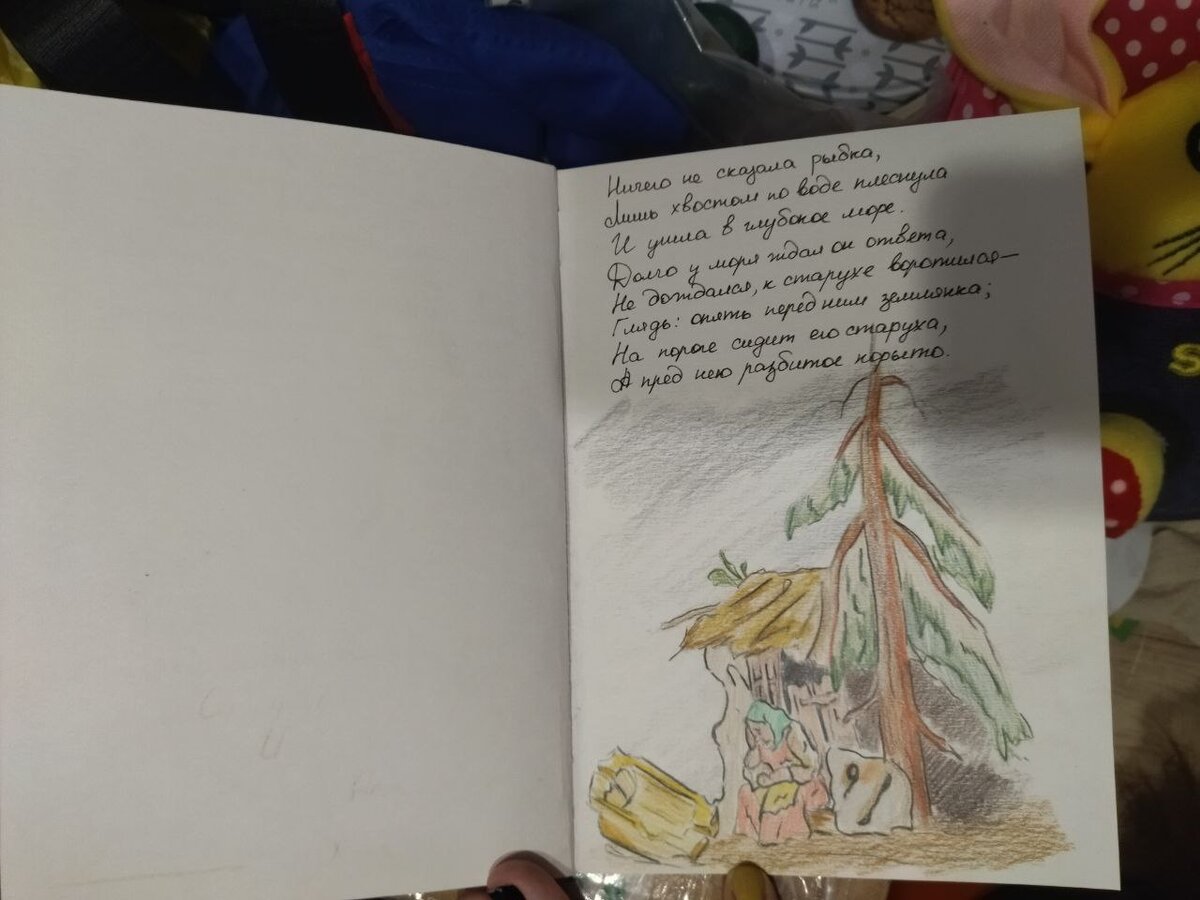 Ничего не сказала рыбка,
Лишь хвостом по воде плеснула
И ушла в глубокое море.
Долго у моря ждал он ответа,
Не дождался, к старухе воротился—
Глядь: опять перед ним землянка;
На пороге сидит его старуха,
А пред нею разбитое корыто.
S